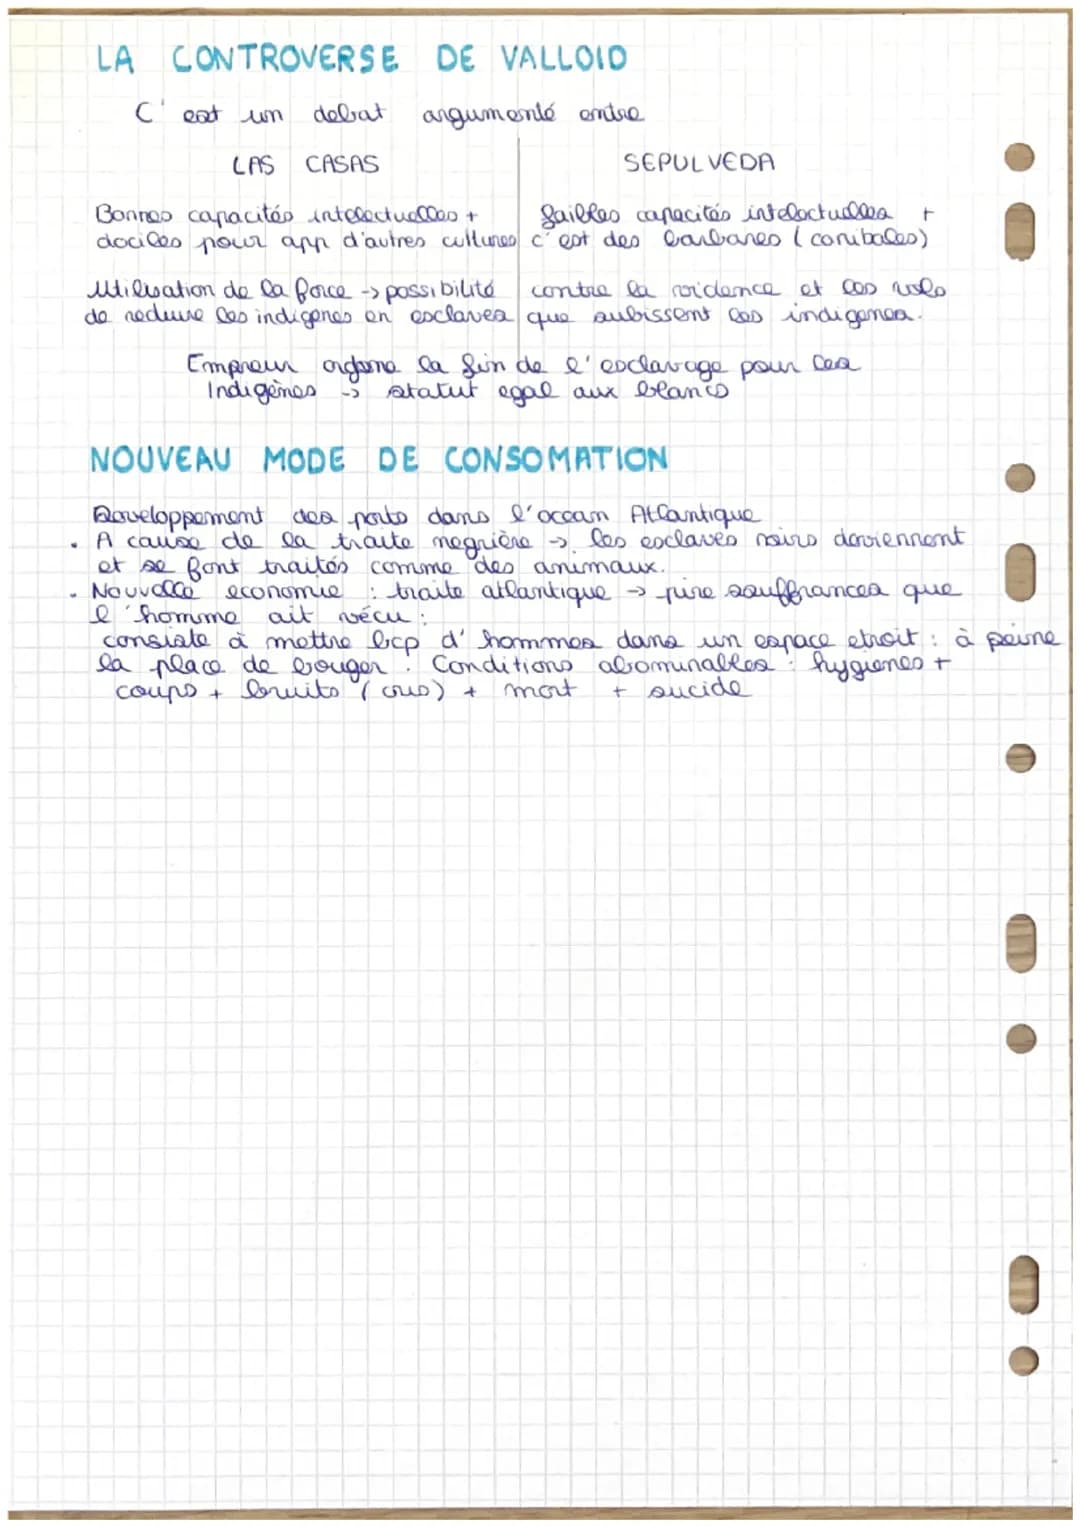 LA CONTROVERSE DE VALLOID
C'est un debat argumenté entre
LAS CASAS
SEPULVEDA
Bonnes capacités intelectuelles +
dociles pour app d'autres cultures
faibles capacités intelectuelles +
c'est des barbares (canibales)
Utilisation de la force -> possibilité
de reduire les indigenes en esclaves
contre la violence et les vols
que subissent les indigenes.
Empreur ordonne la fin de l'esclavage pour les
Indigènes -> statut egal aux blancs
NOUVEAU MODE DE CONSOMATION
Developpement des ports dans l'ocean Atlantique
. A cause de la traite negrière -> les esclaves noirs deviennent
et se font traités comme des animaux.
. Nouvelle economie : traite atlantique -> pire souffrances que
l'homme ait vécu :
consiste à mettre bcp d'hommes dans un espace etroit : à peine
la place de bouger. Conditions abominables : hygienes +
coups + bruits (cris) + mort + sucide